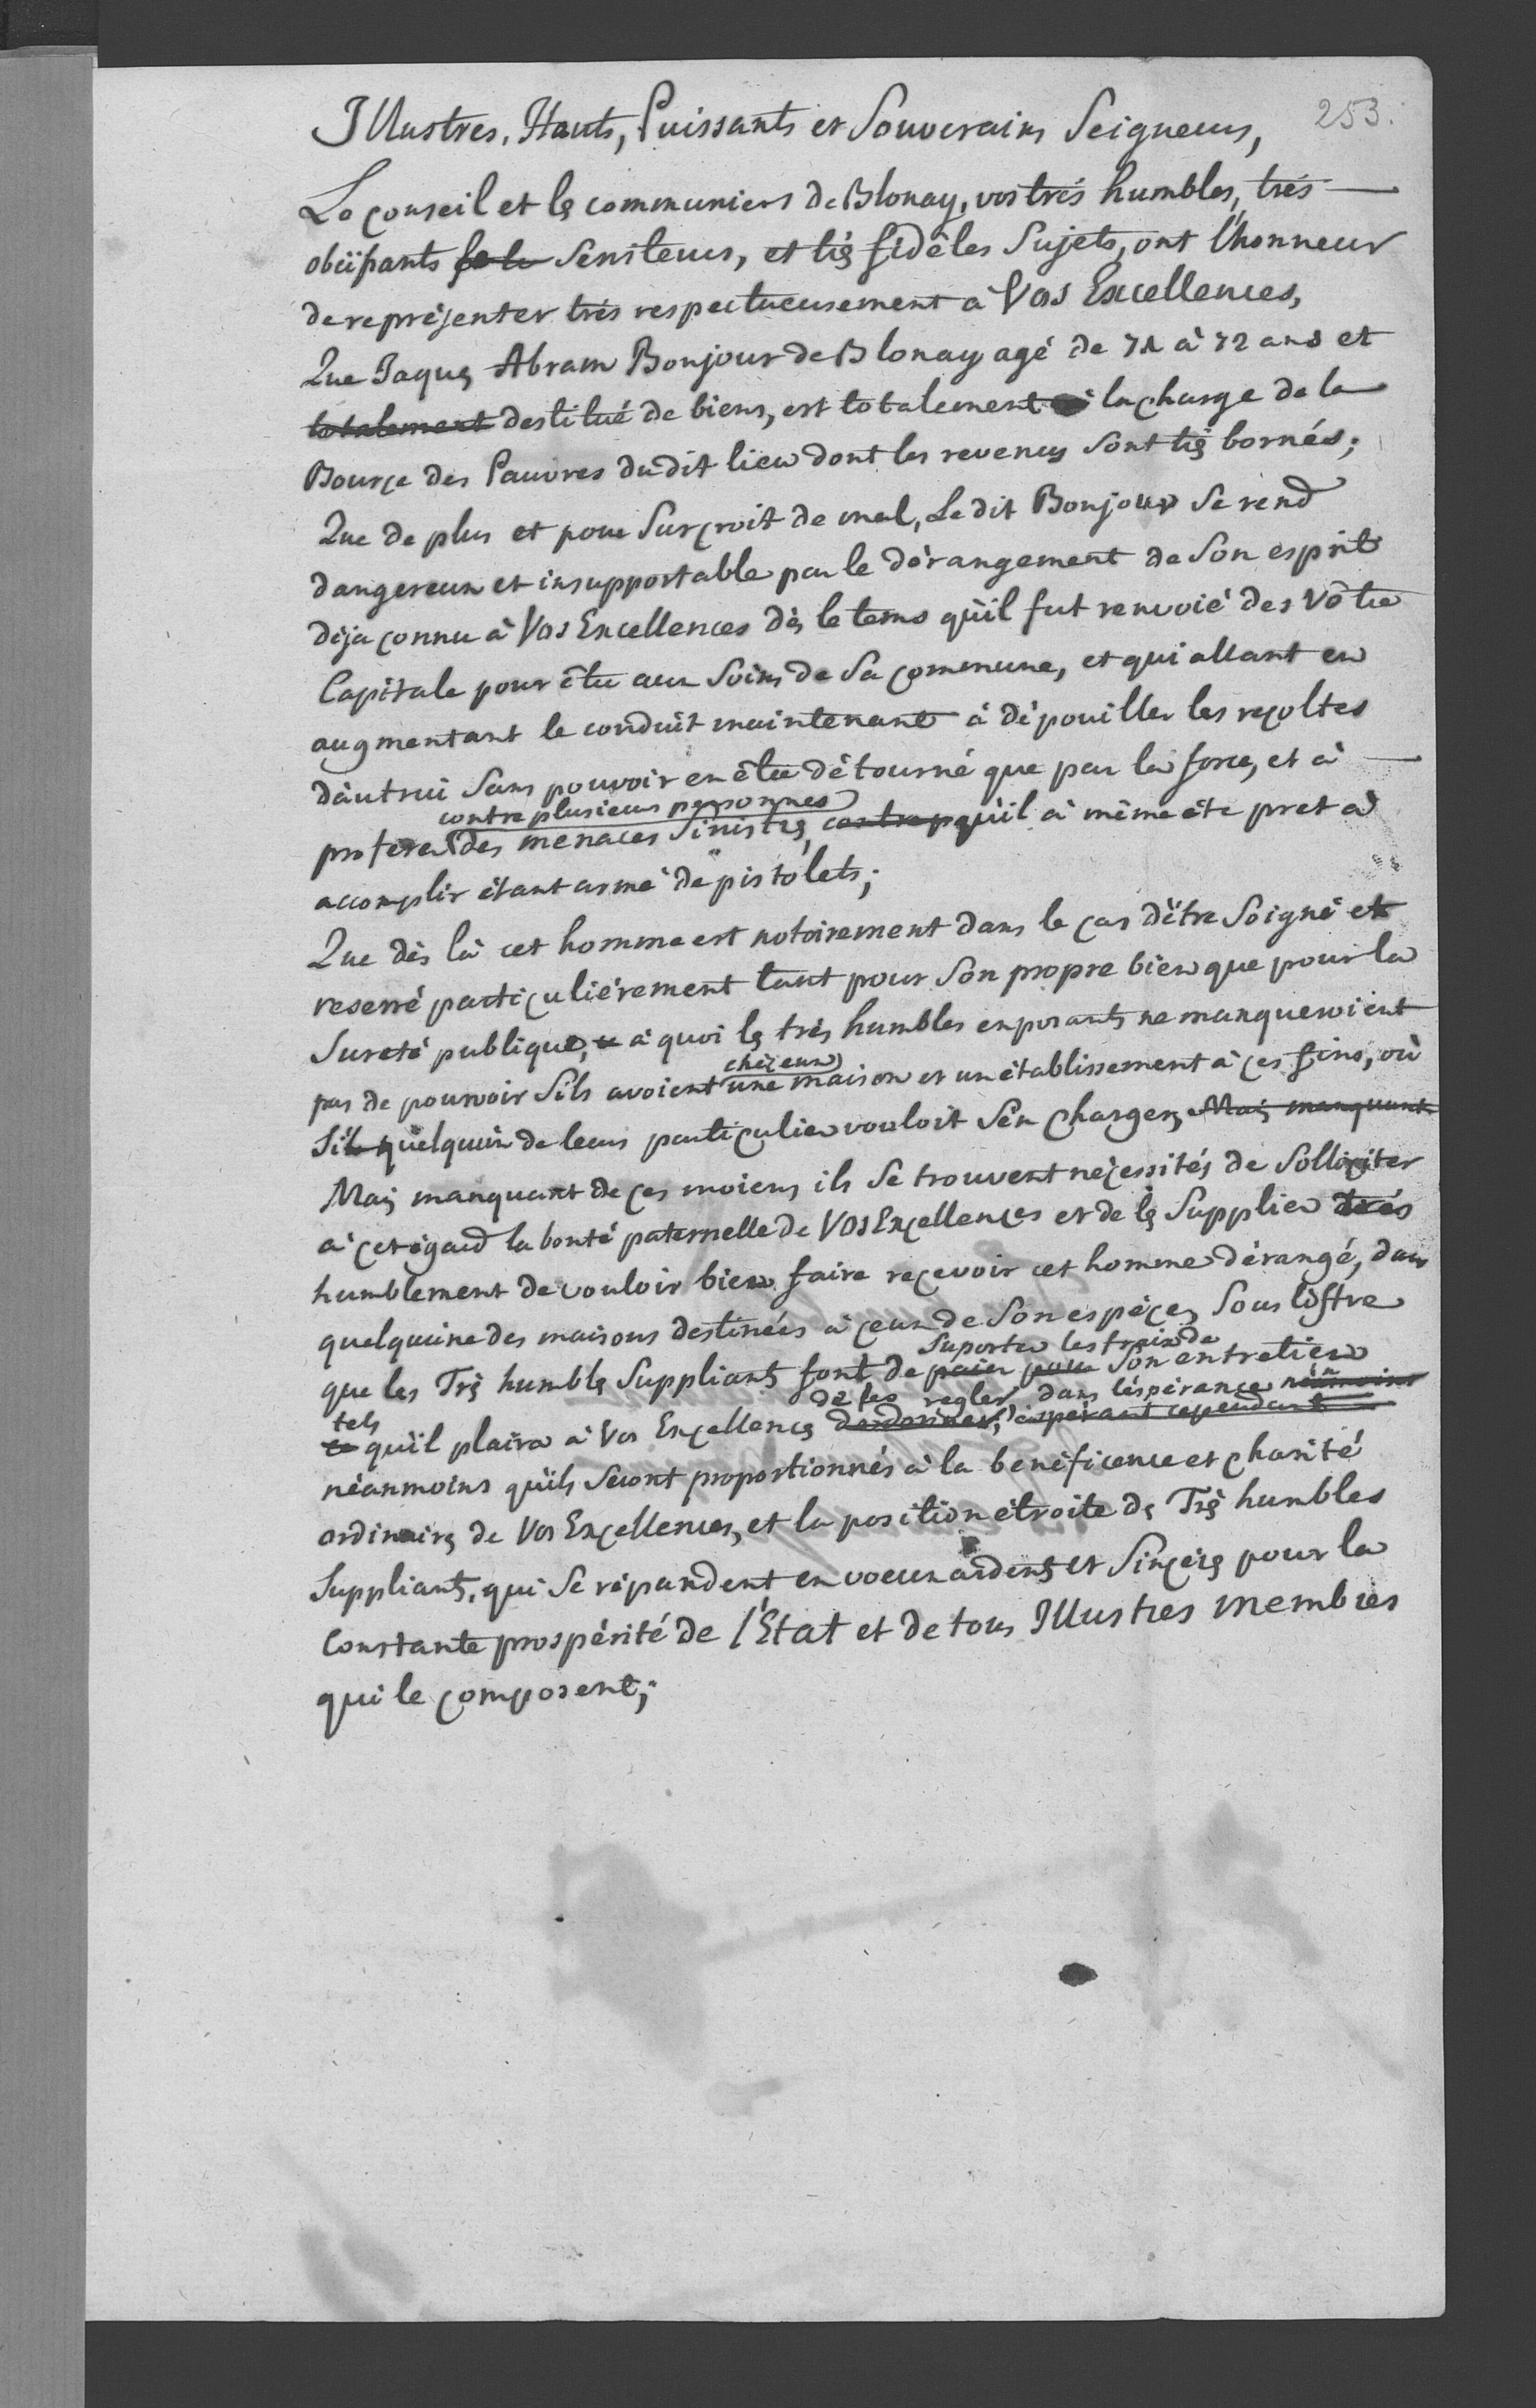 253.
Illustres, Hauts, Puissants et Souverains Seigneurs,
Le Conseil et les communiers de Blonay, vos très humbles, très
obéïssants Serviteurs, et très fidèles Sujets, ont l'honneur
de représenter très respectueusement à Vos Excellences,
Que Jaques Abram Bonjour de Blonay agé de 71 à 72 ans et
totalement destitué de biens, est totalement à la charge de la
Bourçe des Pauvres du dit lieu dont les revenus sont très bornés;
Que de plus et pour Surcroit de mal, Le dit Bonjour Se rend
dangereux et insupportable par le dérangement de Son esprit
déja connu à Vos Excellences dès le tems qu'il fut renvoié des Vôtre
Capitale pour être aux Soins de Sa Commune, et qui allant en
augmentant le conduit maintenant à dépouiller les recoltes
d'autrui Sans pouvoir en être détourné que par la force, et à
contre plusieurs personnes
proferer des menaces Sinistres, contre p qu'il à même été pret à
accomplir étant armé de pistolets;
Que dès là cet homme est notoirement dans le cas d'être Soigné et
reserré particuliérement tant pour Son propre bien que pour la
Sureté publique, à quoi les très humbles exposants ne manqueroient
chez eux
pas de pourvoir S'ils avoient une maison et un établissement à ces fins, où
Si quelqu'un de leurs particulier vouloit S'en charger, Mais manquant
Mais manquant de ces moiens ils Se trouvent nécessités de Solliciter
à cet égard la bonté paternelle de Vos Excellences et de les Supplier très
humblement de vouloir bien faire recevoir cet homme dérangé, dans
quelqu'une des maisons destinées à ceux de Son espèce, Sous l'offre
Suporter les fraix de
que les Très humbles Suppliants font de paier pour Son entretien
tels de les regler, dans l'espérance néanmoins
qu'il plaira à Vos Excellences d'ordonner, espérant cependant
néanmoins qu'ils Seront proportionnés à la bénéficence et charité
ordinaires de Vos Excellences, et la position étroite des Très humbles
Suppliants, qui Se répandent en voeux ardents et Sincères pour la
Constante prospérité de l'Etat et de tous Illustres membres
qui le composent;